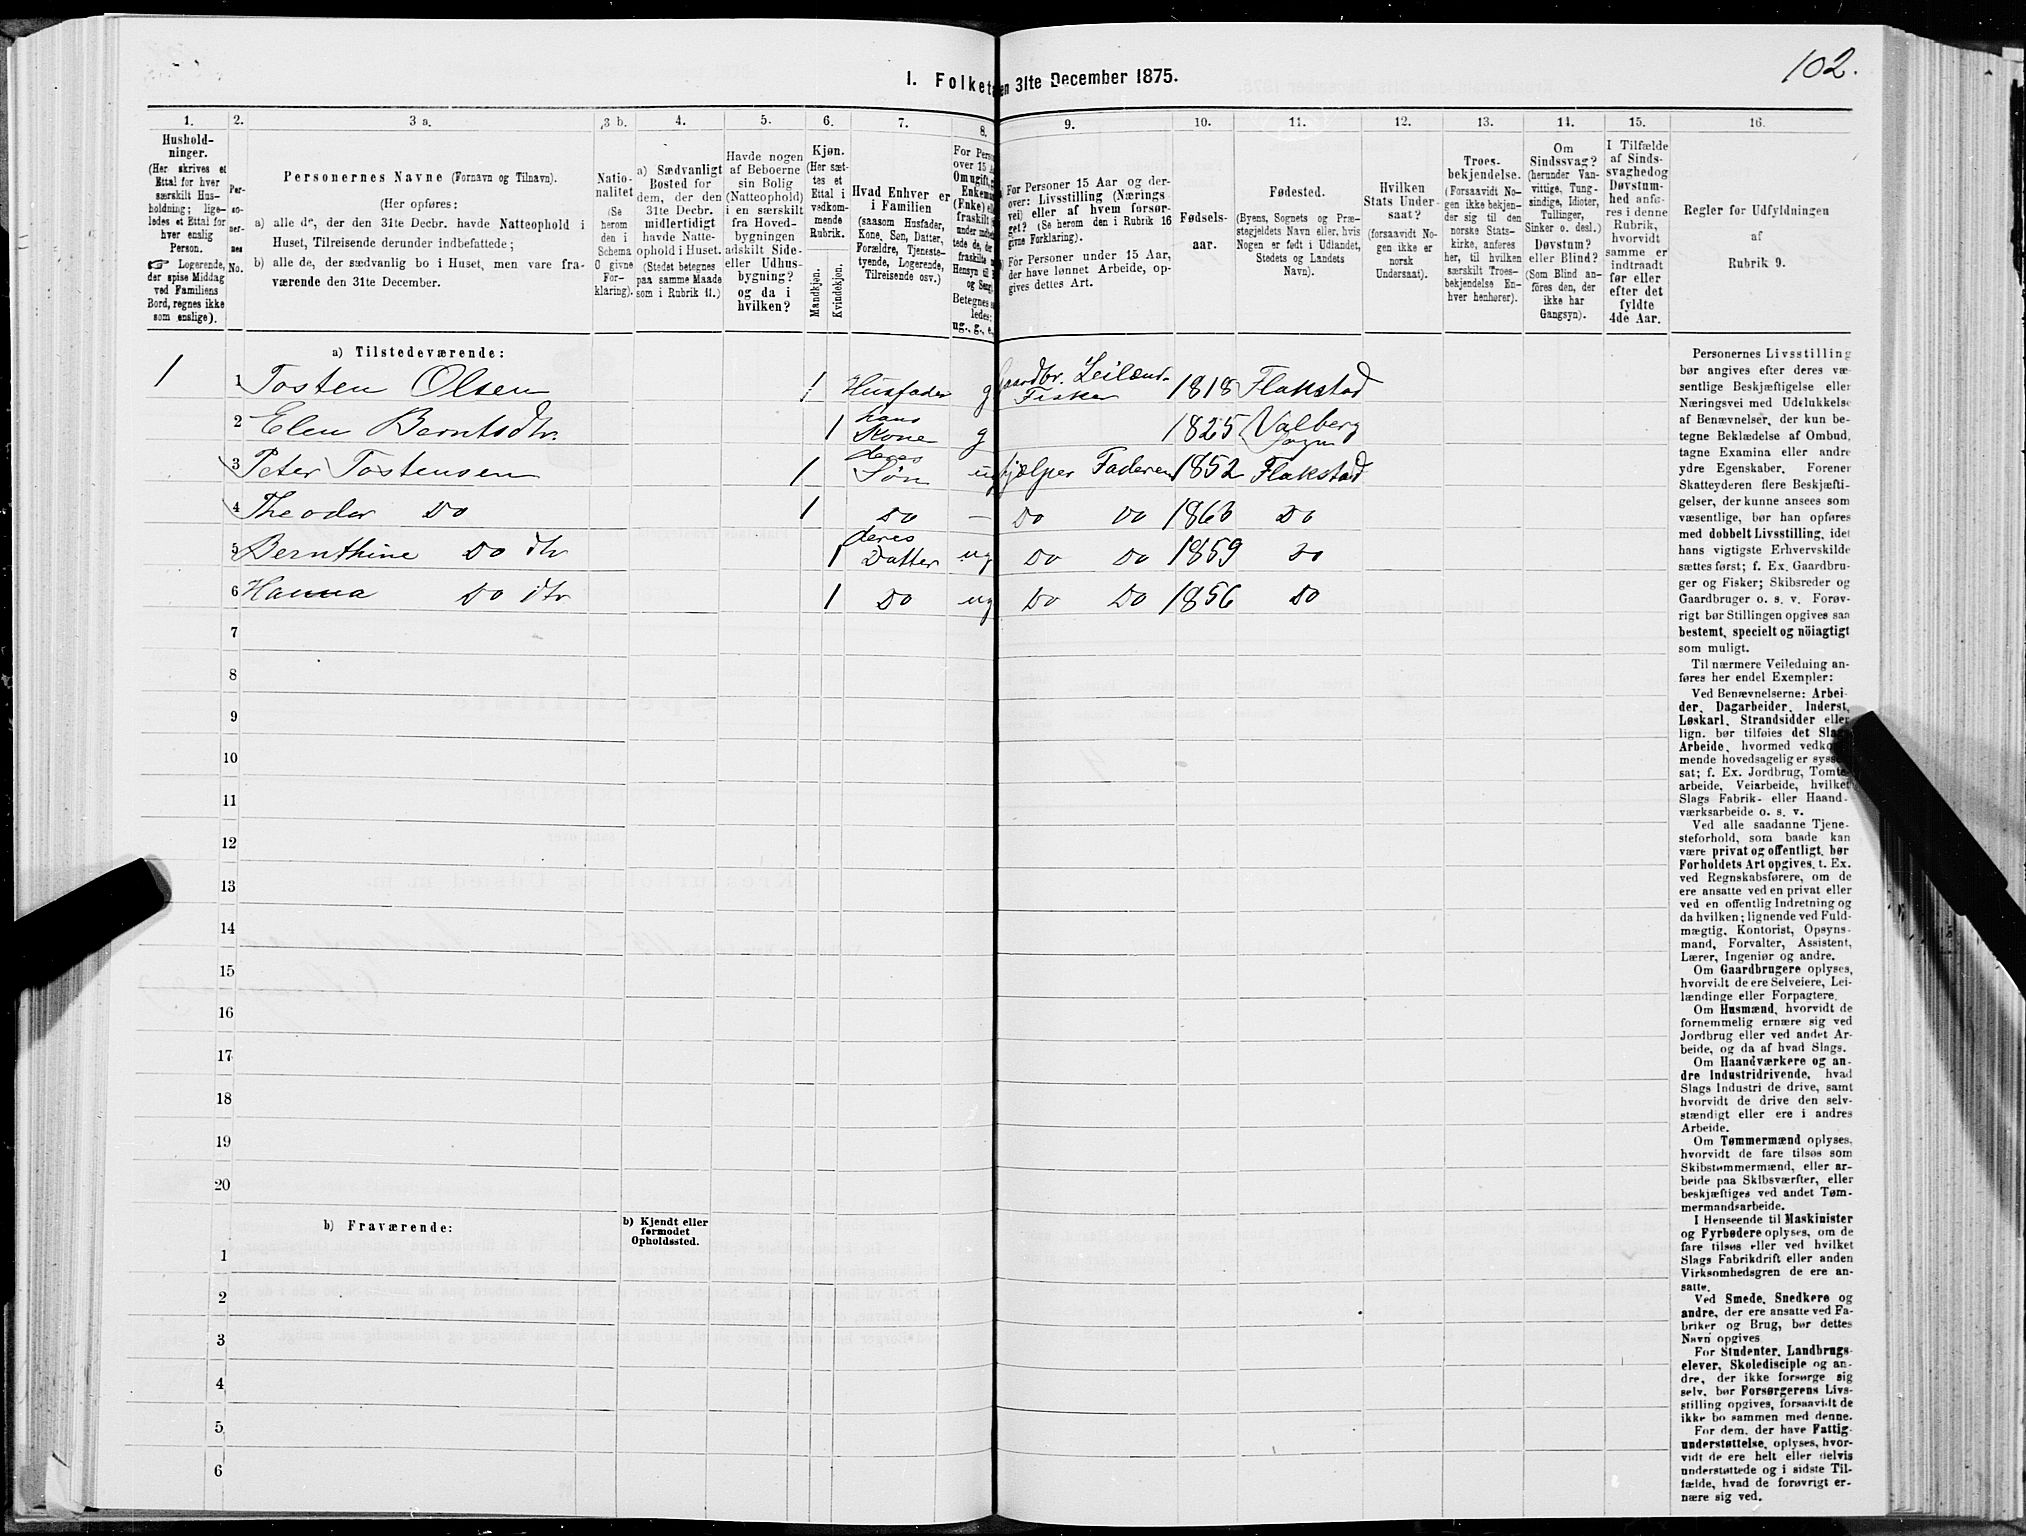 102.
I. Folketa en 31te December 1875.
1. 2. 3 a. 3 b. 4. 5. 6. 7. 8. 9. 10. 11. 12. 13. 14. 15. 16.
Hushold-
ninger.
(Her skrives et
Ettal for hver
særskilt Hus-
holdning; lige-
ledes et Ettal for
hver enslig
Person.
☞ Logerende,
der spise Middag
ved Familiens
Bord, regnes ikke
som enslige).
Per-
so-
ner-
nes
No.
Personernes Navne (Fornavn og Tilnavn).
(Her opføres:
a) alle de, der den 31te Decbr. havde Natteophold i
Huset, Tilreisende derunder indbefattede;
b) alle de, der sædvanlig bo i Huset, men vare fra-
værende den 31te December.
Natio-
nalitet
(Se
herom
den i
Schema
O givne
For-
klaring).
a) Sædvanligt
Bosted for
dem, der den
31te Decbr.
midlertidigt
havde Natte-
ophold i Huset.
(Stedet betegnes
paa samme Maade
som i Rubrik 11.)
Havde nogen
af Beboerne
sin Bolig
(Natteophold)
i en særskilt
fra Hoved-
bygningen
adskilt Side-
eller Udhus-
bygning?
og da i
hvilken?
Kjøn.
(Her sæt-
tes et
Ettal i
vedkom-
mende
Rubrik.
Mandkjøn.
Kvindekjøn.
Hvad Enhver er
i Familien
(saasom Husfader,
Kone, Søn, Datter,
Forældre, Tjeneste-
tyende, Logerende,
Tilreisende osv.)
For Perso
over 15 A
Omugift, g
Enkema
(Enke) el
fraskilt
under indbe
tede de, de
fraskilte
Hensyn til
og Seng).
Betegnes s
ledes:
ug., g., e.,
For Personer 15 Aar og der-
over: Livsstilling (Nærings
vei) eller af hvem forsør-
get? (Se herom den i Rubrik 16
givne Forklaring).
For Personer under 15 Aar,
der have lønnet Arbeide, op-
gives dettes Art.
Fødsels-
aar.
Fødested.
(Byens, Sognets og Præ-
stegjeldets Navn eller, hvis
Nogen er født i Udlandet,
Stedets og Landets
Navn).
Hvilken
Stats Under-
saat?
(forsaavidt No-
gen ikke er
norsk
Undersaat).
Troes-
bekjendelse.
(Forsaavidt No-
gen ikke bekjen-
der sig til den
norske Stats-
kirke, anføres
her, til hvilken
særskilt Troes-
bekjendelse En-
hver henhører).
Om
Sindssvag?
(herunder Van-
vittige, Tung-
sindige, Idioter,
Tullinger,
Sinker o. desl.)
Døvstum?
eller Blind?
(Som Blind an-
føres den, der
ikke har
Gangsyn).
I Tilfælde
af Sinds-
svaghed og
Døvstum-
hed anfø-
res i denne
Rubrik,
hvorvidt
samme er
indtraadt
før eller
efter det
fyldte
4de Aar.
Regler for Udfyldningen
af
Rubrik 9.
a) Tilstedeværende:
1 1 Tosten Olsen 1 Husfader g Gaardbr. Leilænd. Fisker 1818 Flakstad
2 Elen Berntsdtr. 1 hans Kone g 1825 Valberg Sogn
3 Peter Tostensen 1 deres Søn ug hjælper Faderen 1852 Flakstad
4 Theodor Do 1 Do - Do Do 1863 Do
5 Bernthine Do dtr 1 deres Datter ug Do Do 1859 Do
6 Hanna Do dtr 1 Do ug Do Do 1856 Do
7
8
9
10
11
12
13
14
15
16
17
18
19
20
b) Fraværende: b) Kjendt eller
formodet
Opholdssted.
1
2
3
4
5
6
Personernes Livsstilling
bør angives efter deres væ-
sentlige Beskjæftigelse eller
Næringsvei med Udelukkelse
af Benævnelser, der kun be-
tegne Beklædelse af Ombud,
tagne Examina eller andre
ydre Egenskaber. Forener
Skatteyderen flere Beskjæfti-
gelser, der kunne ansees som
væsentlige, bør han opføres
med dobbelt Livsstilling, idet
hans vigtigste Erhvervskilde
sættes først; f. Ex. Gaardbru-
ger og Fisker; Skibsreder og
Gaardbruger o. s. v. Forøv-
rigt bør Stillingen opgives saa
bestemt, specielt og nöiagtigt
som muligt.
Til nærmere Veiledning an-
føres her endel Exempler:
Ved Benævnelserne: Arbei-
der, Dagarbeider, Inderst,
Løskarl, Strandsidder eller
lign. bør tilføies det Slags
Arbeide, hvormed vedkom-
mende hovedsagelig er syssel-
sat; f. Ex. Jordbrug, Tomte-
arbeide, Veiarbeide, hvilket
Slags Fabrik- eller Haand-
værksarbeide o. s. v.
Ved alle saadanne Tjene-
steforhold, som baade kan
være privat og offentligt, bør
Forholdets Art opgives, t. Ex.
ved Regnskabsførere, om de
ere ansatte ved en privat eller
ved en offentlig Indretning og
da hvilken; lignende ved Fuld-
mægtig, Kontorist, Opsyns-
mand, Forvalter, Assistent,
Lærer, Ingeniør og andre.
Om Gaardbrugere oplyses,
hvorvidt de ere Selveiere, Lei-
lændinge eller Forpagtere.
Om Husmænd, hvorvidt de
fornemmelig ernære sig ved
Jordbrug eller ved andet Ar-
beide, og da af hvad Slags.
Om Haandværkere og an-
dre Industridrivende, hvad
Slags Industri de drive, samt
hvorvidt de drive den selv-
stændigt eller ere i andres
Arbeide.
Om Tømmermænd oplyses,
hvorvidt de fare tilsøs som
Skibstømmermænd, eller ar-
beide paa Skibsværfter, eller
beskjæftiges ved andet Tøm-
mermandsarbeide.
I Henseende til Maskinister
og Fyrbødere oplyses, om de
fare tilsøs eller ved hvilket
Slags Fabrikdrift eller anden
Virksomhedsgren de ere an-
satte.
Ved Smede, Snedkere og
andre, der ere ansatte ved Fa-
briker og Brug, bør dettes
Navn opgives.
For Studenter, Landbrugs-
elever, Skoledisciple og an-
dre, der ikke forsørge sig
selv, bør Forsørgerens Livs-
stilling opgives, forsaavidt de
ikke bo sammen med denne.
For dem, der have Fattig-
understøttelse, oplyses, hvor-
vidt de ere helt eller delvis
understøttede og i sidste Til-
fælde, hvad de forøvrigt er-
nære sig ved.